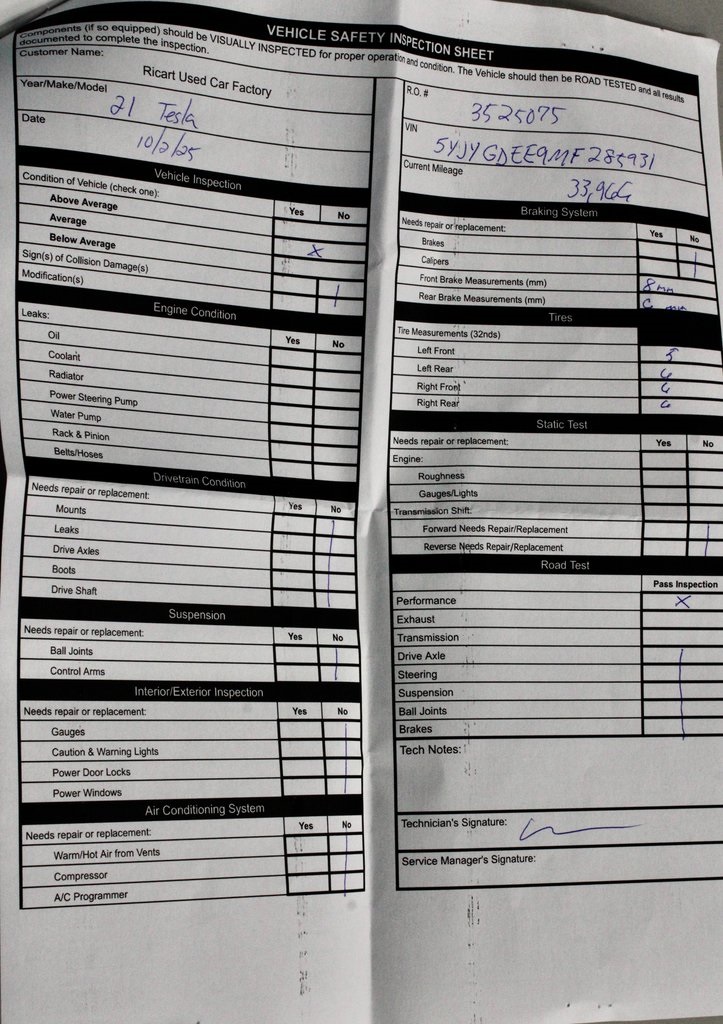 VEHICLE SAFETY INSPECTION SHEET
Components (if so equipped) should be VISUALLY INSPECTED for proper operation and condition. The Vehicle should then be ROAD TESTED and all results
documented to complete the inspection.
Customer Name:
Ricart Used Car Factory
Year/Make/Model
21 Tesla
Date
10/2/25
Vehicle Inspection
Condition of Vehicle (check one): Yes No
Above Average
Average X
Below Average
Sign(s) of Collision Damage(s)
Modification(s)
Engine Condition
Leaks: Yes No
Oil
Coolant
Radiator
Power Steering Pump
Water Pump
Rack & Pinion
Belts/Hoses
Drivetrain Condition
Needs repair or replacement: Yes No
Mounts
Leaks
Drive Axles
Boots
Drive Shaft
Suspension
Needs repair or replacement: Yes No
Ball Joints
Control Arms
Interior/Exterior Inspection
Needs repair or replacement: Yes No
Gauges
Caution & Warning Lights
Power Door Locks
Power Windows
Air Conditioning System
Needs repair or replacement: Yes No
Warm/Hot Air from Vents
Compressor
A/C Programmer
R.O. #
3525075
VIN
5YJYGDEE9MF285931
Current Mileage
Braking System
Needs repair or replacement: Yes No
Brakes
Calipers
Front Brake Measurements (mm) 8mm
Rear Brake Measurements (mm) mm
Tires
Tire Measurements (32nds)
Left Front 5
Left Rear
Right Front
Right Rear
Static Test
Needs repair or replacement: Yes No
Engine:
Roughness
Gauges/Lights
Transmission Shift:
Forward Needs Repair/Replacement
Reverse Needs Repair/Replacement
Road Test
Pass Inspection
Performance X
Exhaust
Transmission
Drive Axle
Steering
Suspension
Ball Joints
Brakes
Tech Notes:
Technician's Signature:
Service Manager's Signature: